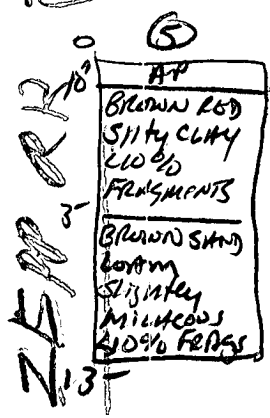 0 5
10" AP
BROWN RED
SILTY CLAY
<10%
FRAGMENTS
3-
BROWN SAND
LOAM
SLIGHTLY
MICACEOUS
<10% FRAGS
13-